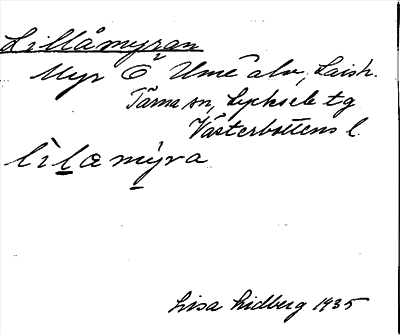 Lillåmyran
Myr Ö Ume älv, Laish.
Tärna sn, Lycksele tg
Västerbottens l.
lìlamýra
Lisa Lidberg 1935